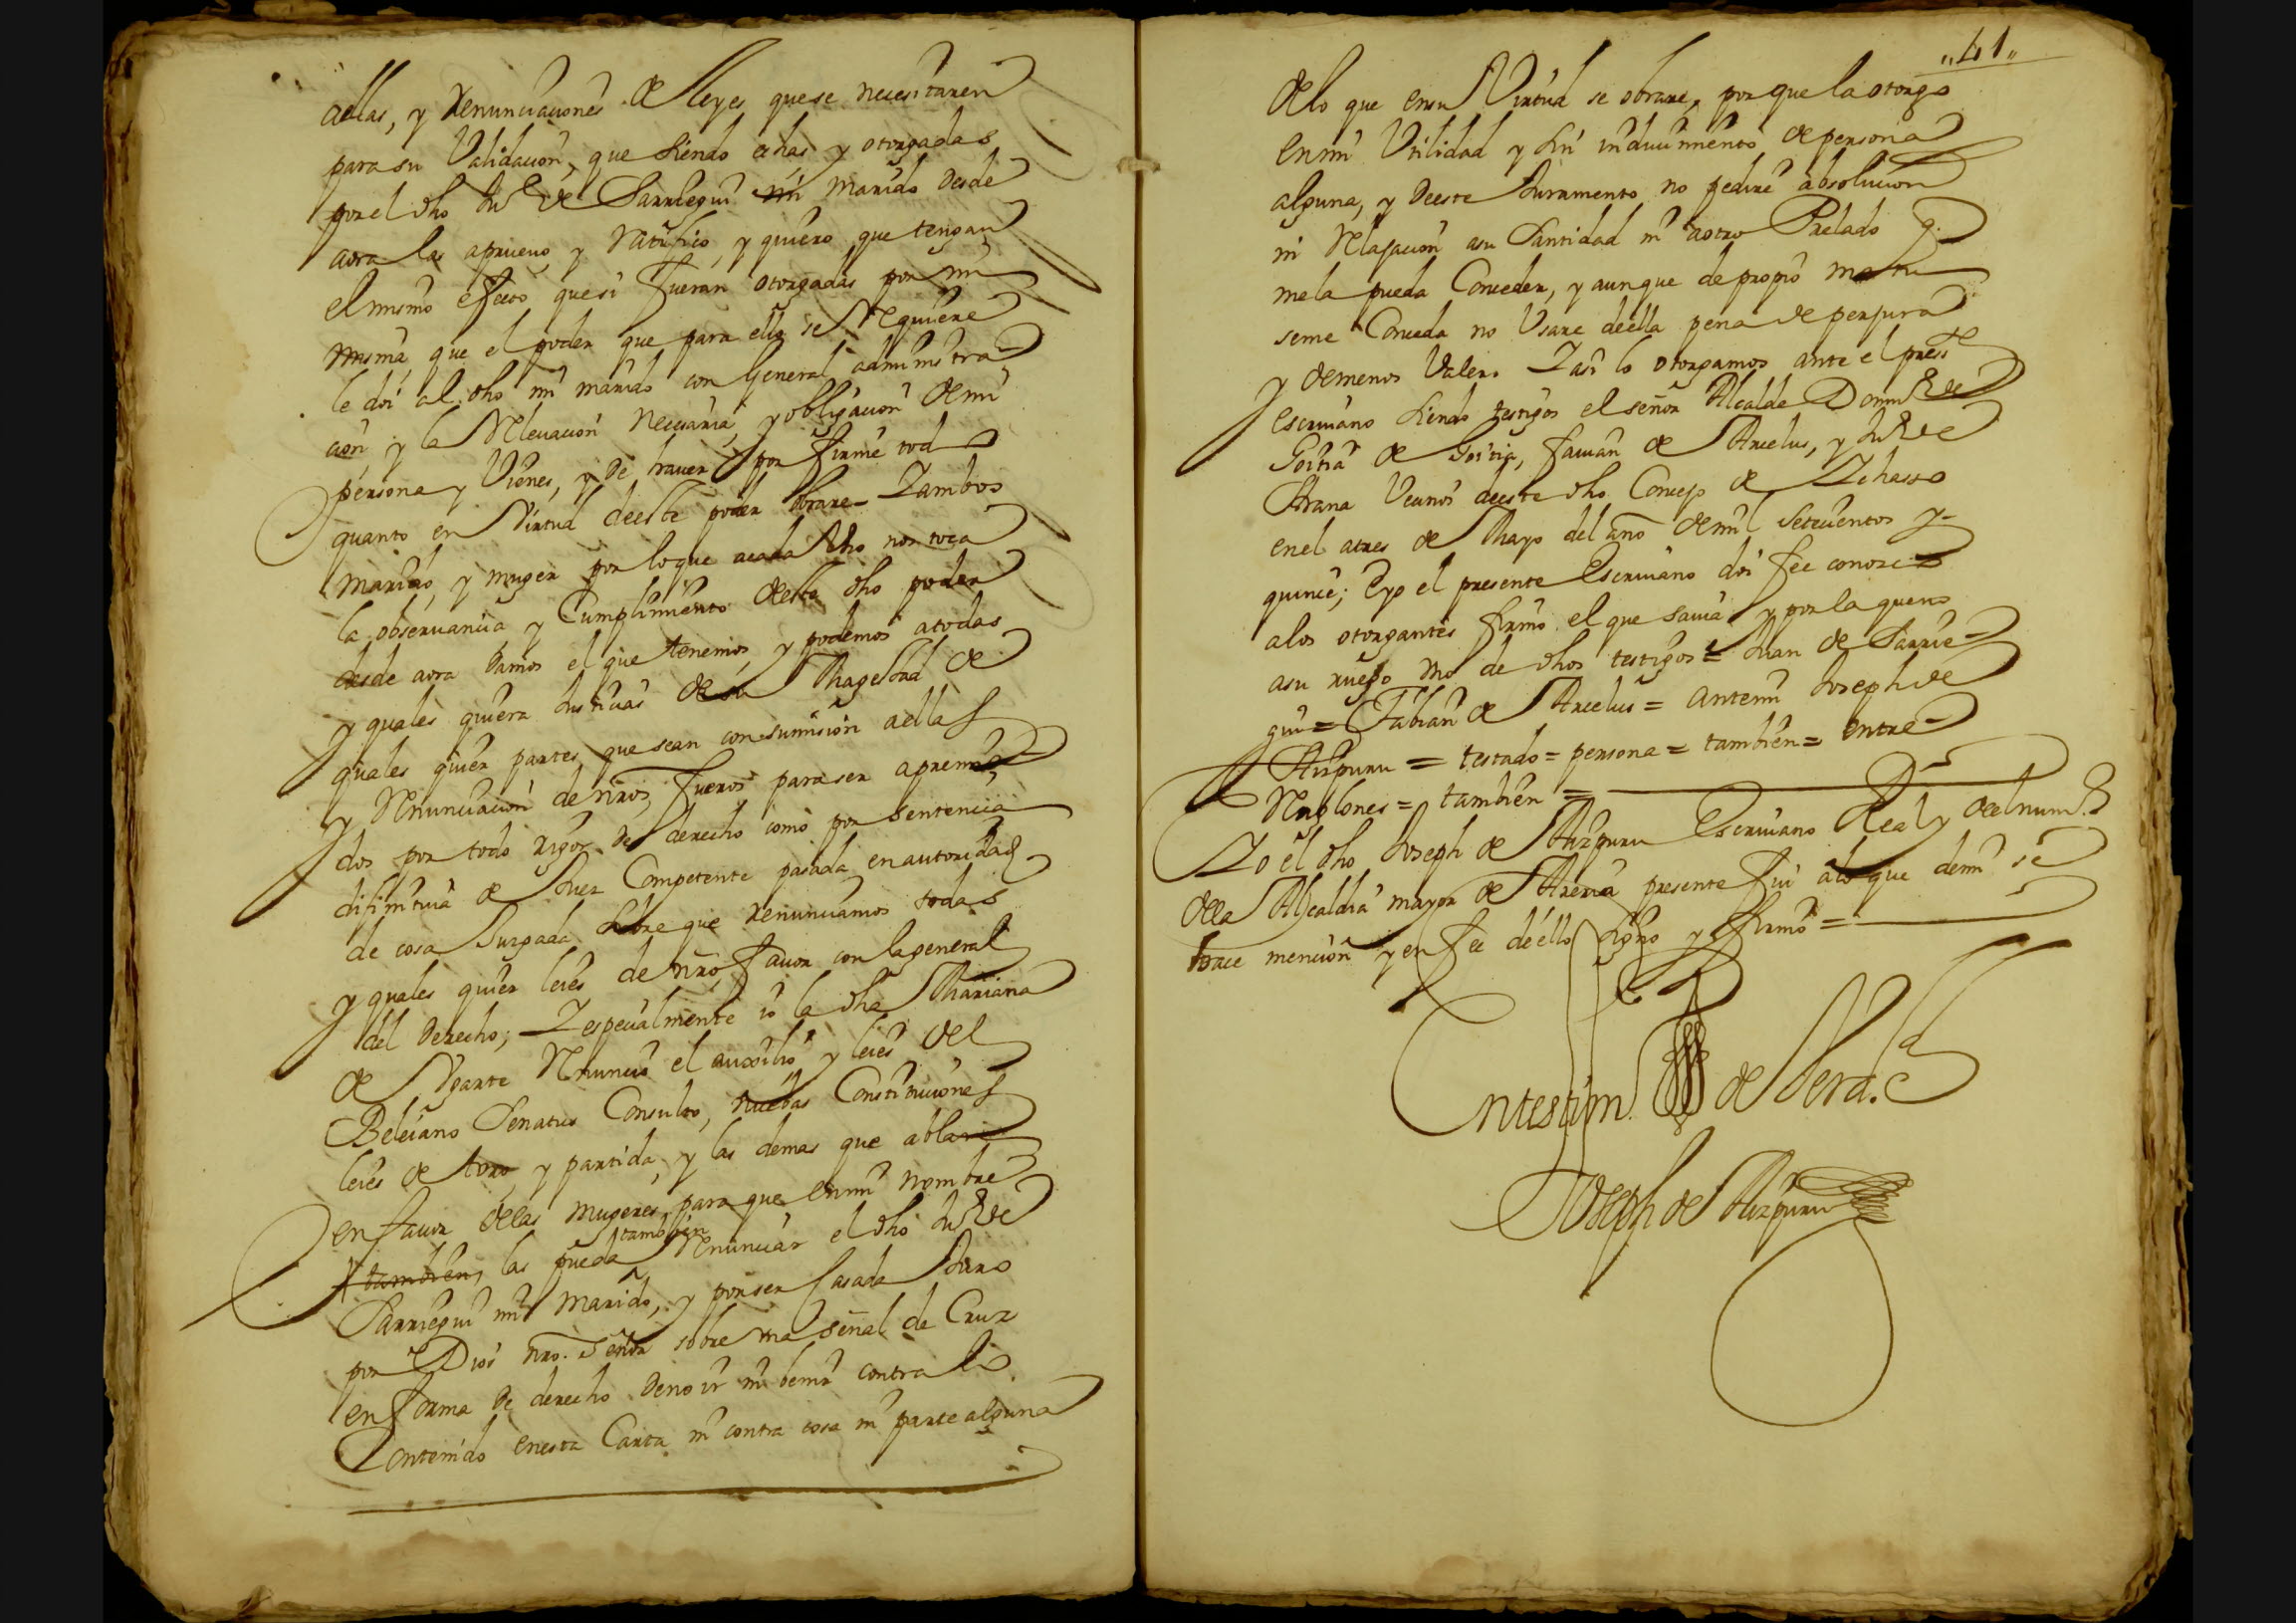 aellas, y Renunciaciones de leyes que se necesitaren
para su Validacion, que siendo echas y otorgadas
por el dho Juº de Sarriegui mi marido desde
aora las aprueuo, y Ratifico, y quiero que tengan
el mismo efecto que si fueran otorgadas por mi
misma, que el poder que para ello se Requiere
le doi al dho mi marido con General administra-
cion, y la Releuacion Necesaria, y obligacion de mi
persona y Vienes, y de hauer por firme todo
quanto en Virtud de este poder obrare Y ambos
marido, y muger por lo que a cada Vno nos toca
la obseruancia y Cumplimiento de este dho poder
desde aora Damos el que tenemos, y podemos a todas
y quales quiera Justicias de su Magestad de
quales quier partes que sean con sumision aellas
y Renunciacion de nros fueros para ser apremia-
dos por todo rigor de derecho como por sentencia
difinitiua de Juez Competente pasada en autoridad
de cosa Juzgada sobre que renunciamos todas
y quales quier leies de nro fauor con la general
del Derecho; Y especialmente io la dha Mariana
de Vgarte Renuncio el auxilio y leies del
Beleiano Senatus Consulto, nuebas Constituciones
leies de toro, y partida, y las demas que ablan
en fauor de las mugeres para que en mi nombre
tambien
tambien, las pueda Renunciar el dho Juº de
Sarriegui mi marido, y por ser casada Juro
por Dios nro. Señor sobre vna señal de Cruz
en forma de derecho de no ir ni benir contra lo
Contenido en esta Carta ni contra cosa ni parte alguna
,,41,,
de lo que en su Virtud se obrare, por que la otorgo
en mi Vtilidad y sin inducimiento de persona
alguna, y de este Juramento no pedire absolucion
ni Relajacion a su Santidad ni a otro Prelado q.
me la pueda Conceder, y aunque de propio motu
se me Conceda no Vsare de ella pena de perjura
y de menos Valer. Y asi lo otorgamos ante el presste
escriuano siendo testigos el señor Alcalde Domº de
Goitia de Goitia, fauian de Arcelus, y Juº de
Arana Vecinos de este dho Concejo de Ychasso
en el a tres de Mayo del año de mil Setecientos y
quince; E yo el presente Escriuano doi fee conozco
a los otorgantes firmo el que sauia y por la que no
a su ruego vno de dhos testigos = Juan de Sarrie-
gui = Fabian de Arcelus = ante mi Joseph de
Aizpuru = testado = persona = tambien = entre
Renglones = tambien =
Yo el dho Joseph de Aizpuru Escriuano Real y del num.º
de la Alcaldia mayor de Areria presente fui a lo que de mi se
hace mencion y en fee de ello signo y firmo =
En testim. de Verd.
Joseph de Aizpuru